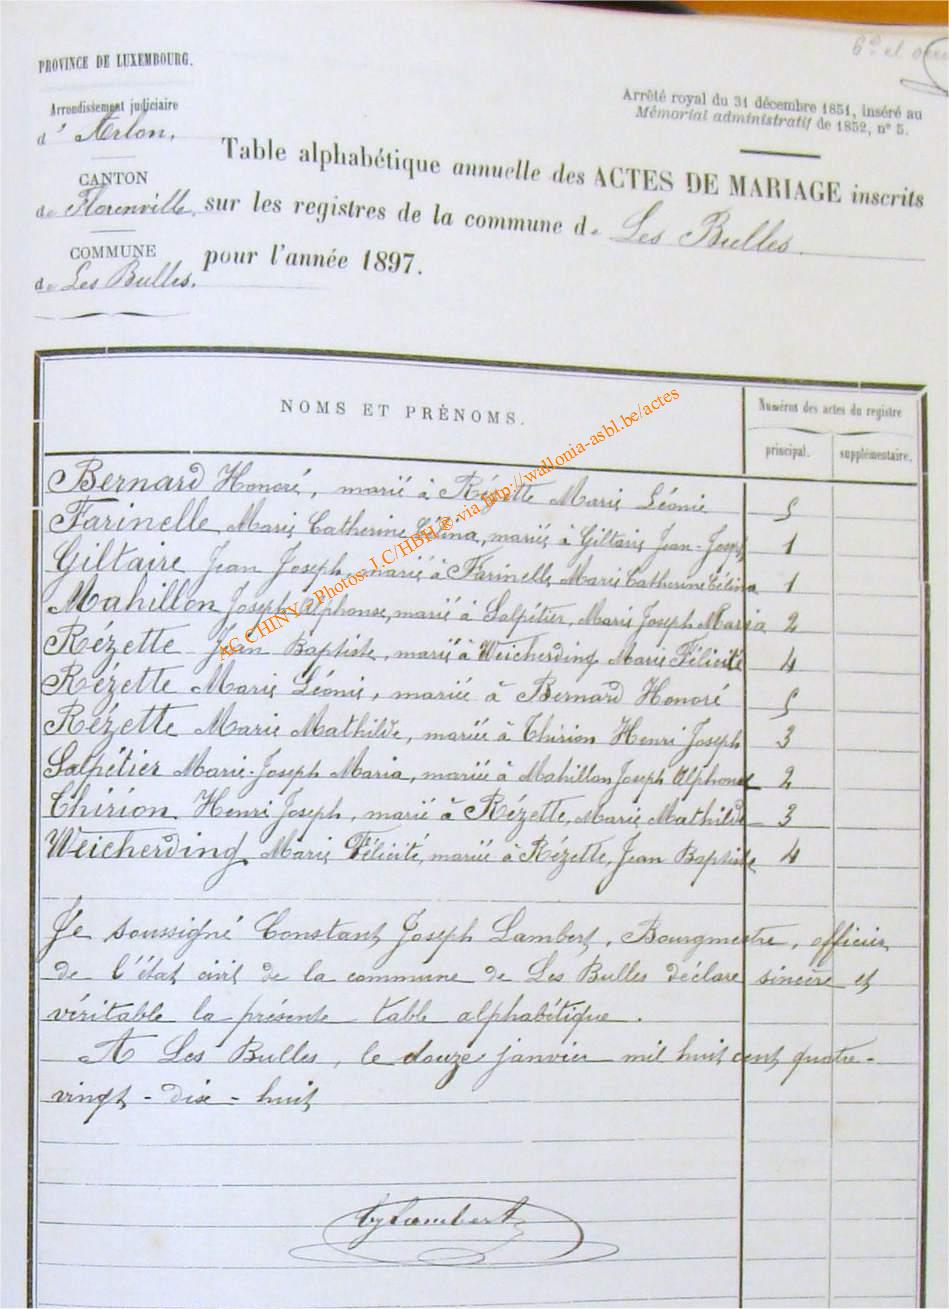 6º et
PROVINCE DE LUXEMBOURG.
Arrondissement judiciaire
d'Arlon.
CANTON
de Florenville.
COMMUNE
de Les Bulles.
Arrêté royal du 31 décembre 1851, inséré au
Mémorial administratif de 1852, nº 5.
Table alphabétique annuelle des ACTES DE MARIAGE inscrits
sur les registres de la commune de Les Bulles.
pour l'année 1897.
NOMS ET PRÉNOMS.
Numéros des actes du registre
principal. supplémentaire.
Bernard Honoré, marié à Rézette Marie Léonie 5
Farinelle Marie Catherine Célina, mariée à Giltaire Jean-Joseph 1
Giltaire Jean Joseph, marié à Farinelle Marie Catherine Célina 1
Mahillon Joseph Alphonse, marié à Salpétier, Marie Joseph Maria 2
Rézette Jean Baptiste, marié à Weicherding Marie Félicité 4
Rézette Marie Léonie, mariée à Bernard Honoré 5
Rézette Marie Mathilde, mariée à Thirion Henri Joseph 3
Salpétier Marie-Joseph Maria, mariée à Mahillon Joseph Alphonse 2
Thirion Henri Joseph, marié à Rézette, Marie Mathilde 3
Weicherding Marie Félicité, mariée à Rézette, Jean Baptiste 4
Je soussigné Constant Joseph Lambert, Bourgmestre, officier
de l'état civil de la commune de Les Bulles déclare sincère et
véritable la présente table alphabétique.
A Les Bulles, le douze janvier mil huit cent quatre-
vingt-dix-huit
Lambert
AC CHINY - Photos: J.C/HBH ® via http://wallonia-asbl.be/actes